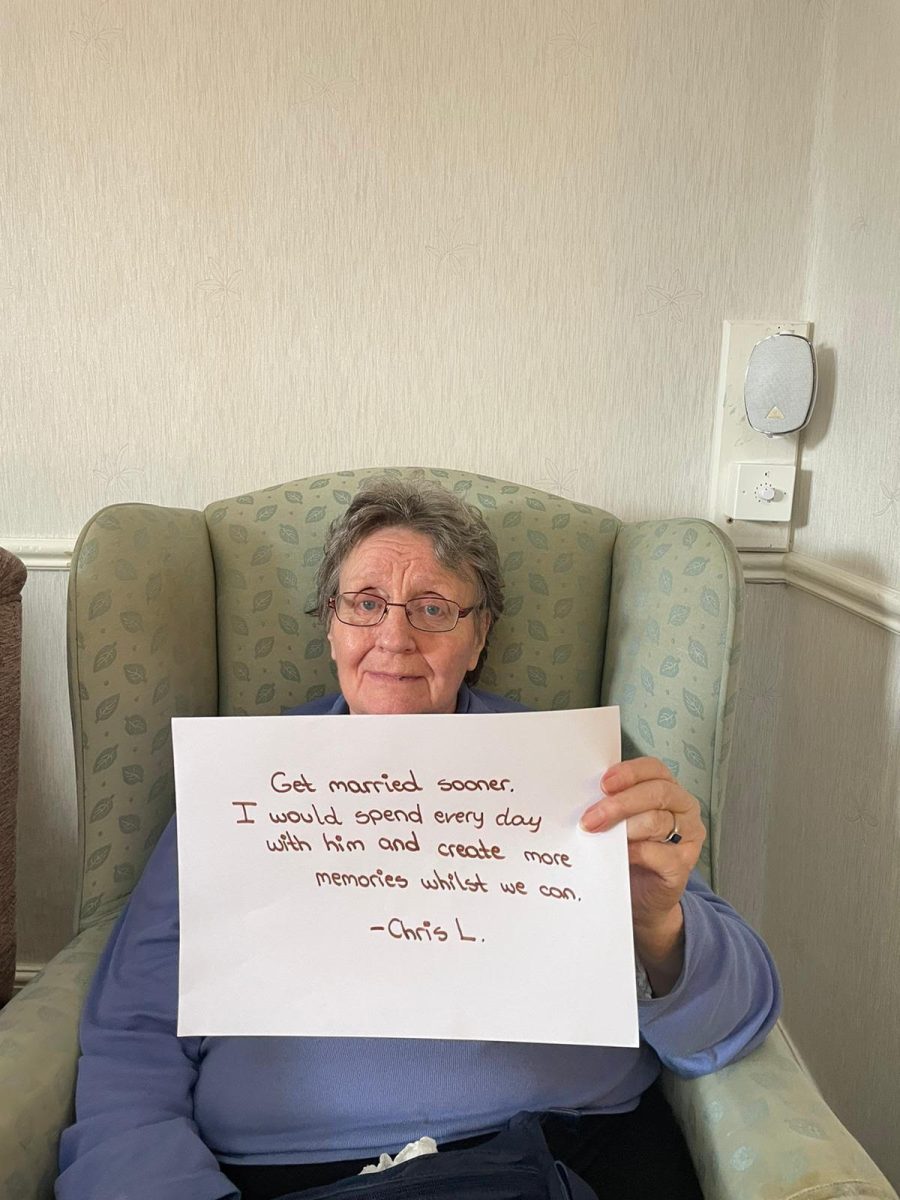 Get married sooner.
I would spend every day
with him and create more
memories whilst we can.
-Chris L.